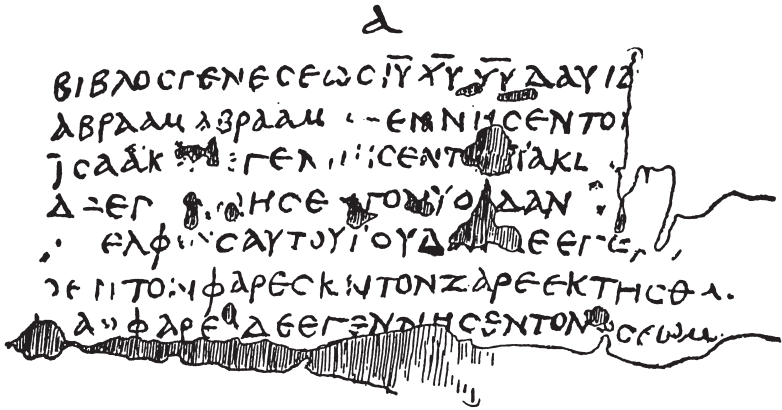 α
ΒΙΒΛΟϹΓΕΝΕϹΕΩϹ Ι̅Υ̅ Χ̅Υ̅ Υ̅Υ̅ ΔΑΥΙΔ
ΑΒΡΑΑΜ ΑΒΡΑΑΜ ΕΝΝΗϹΕΝΤΟ
ΙϹΑΑΚ ΓΕΝ ϹΕΝΤ ΪΑΚ
Δ ΕΓ ΗϹΕ ΤΟΝ ΪΟ ΔΑΝ
ΕΛΦ ϹΑΥΤΟΥΪΟΥΔ ΕΕΓΕ
ΤΟΝ ΦΑΡΕϹ Κ ΤΟΝΖΑΡΕΕΚΤΗϹΘΑ
ΦΑΡΕ ΔΕΕΓΕΝΝΗϹΕΝΤΟΝ ϹΕΩΜ